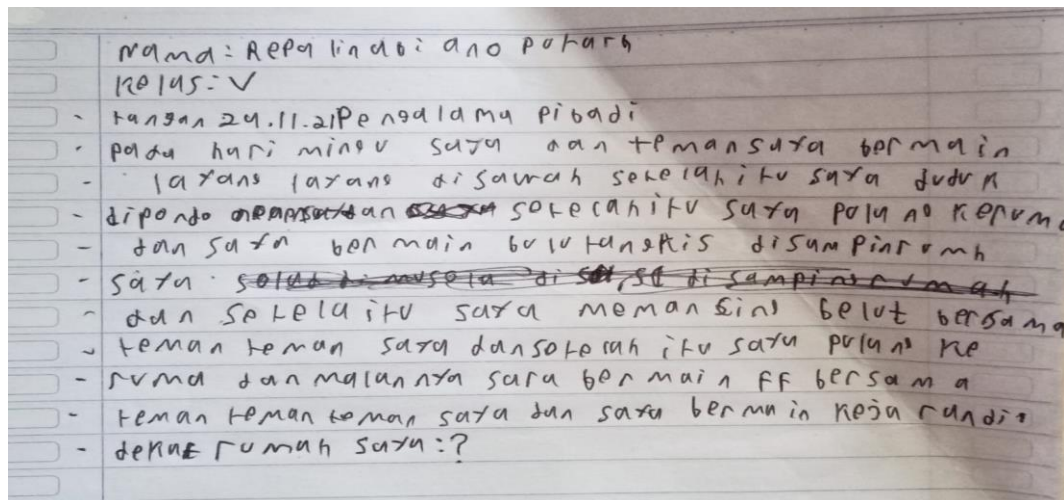 Nama: Repa lindbi ano putara
Kelas: V
tangan 29.11.21 Pengalama pibadi
pada hari mingu saya dan teman saya bermain
layang layang disawah setelah itu saya duduk
dipondo dan setelah itu saya pulang keruma
dan saya bermain bulutangkis disampinrumh
saya
dan setela itu saya memancing belut bersama
teman teman saya dan setelah itu saya pulang ke
ruma dan malannya saya bermain FF bersama
teman teman teman saya dan saya bermain keja randi
dekat rumah saya:?